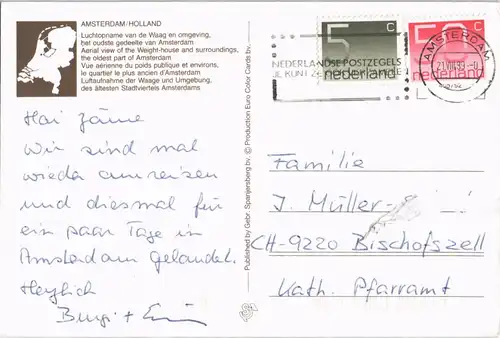 AMSTERDAM/HOLLAND
Luchtopname van de Waag en omgeving,
het oudste gedeelte van Amsterdam
Aerial view of the Weight-house and surroundings,
the oldest part of Amsterdam
Vue aérienne du poids publique et environs,
le quartier le plus ancien d'Amsterdam
Luftaufnahme der Waage und Umgebung,
des ältesten Stadtviertels Amsterdams
Hoi zäme
Wir sind mal
wieder am reisen
und diesmal für
ein paar Tage in
Amsterdam gelandet.
Herzlich
Published by Gebr. Spanjersberg bv. © Production Euro Color Cards bv.
5 c
nederland
50 c
nederland
NEDERLANDSE POSTZEGELS
JE KUNT ZE
AMSTERDAM
Familie
J. Müller-
CH-9220 Bischofszell
Kath. Pfarramt